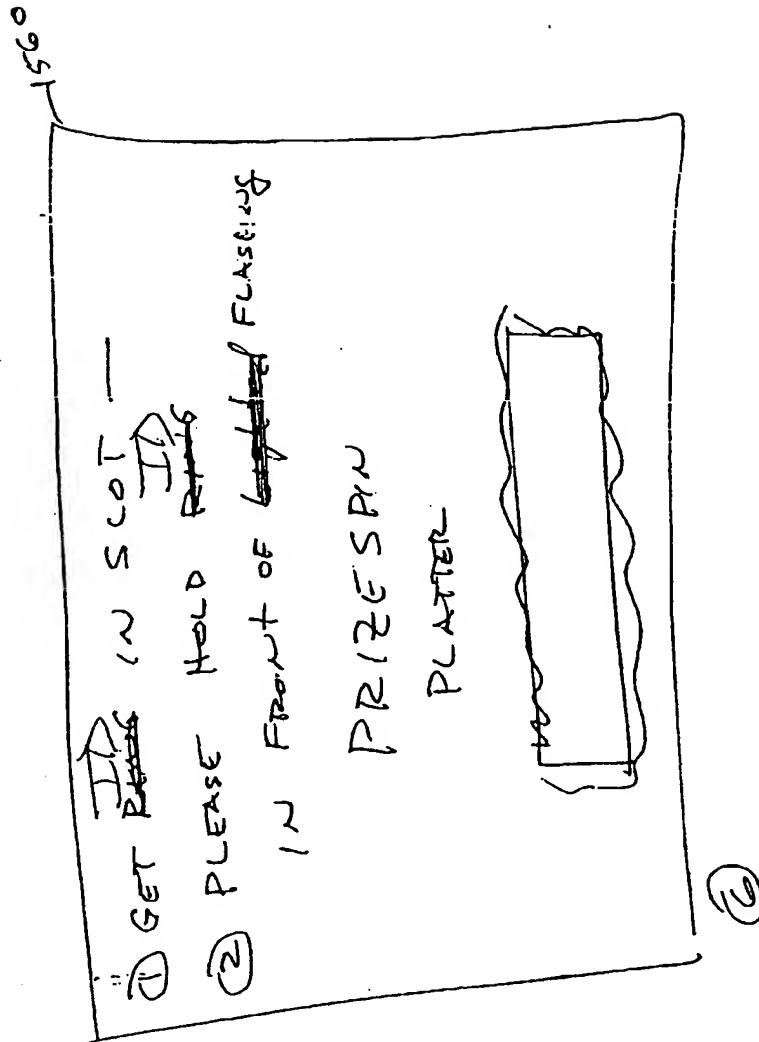 1560
① GET ID IN SLOT —
② PLEASE HOLD ID
IN FRONT OF FLASHING
PRIZE SPIN
PLATTER
⑥